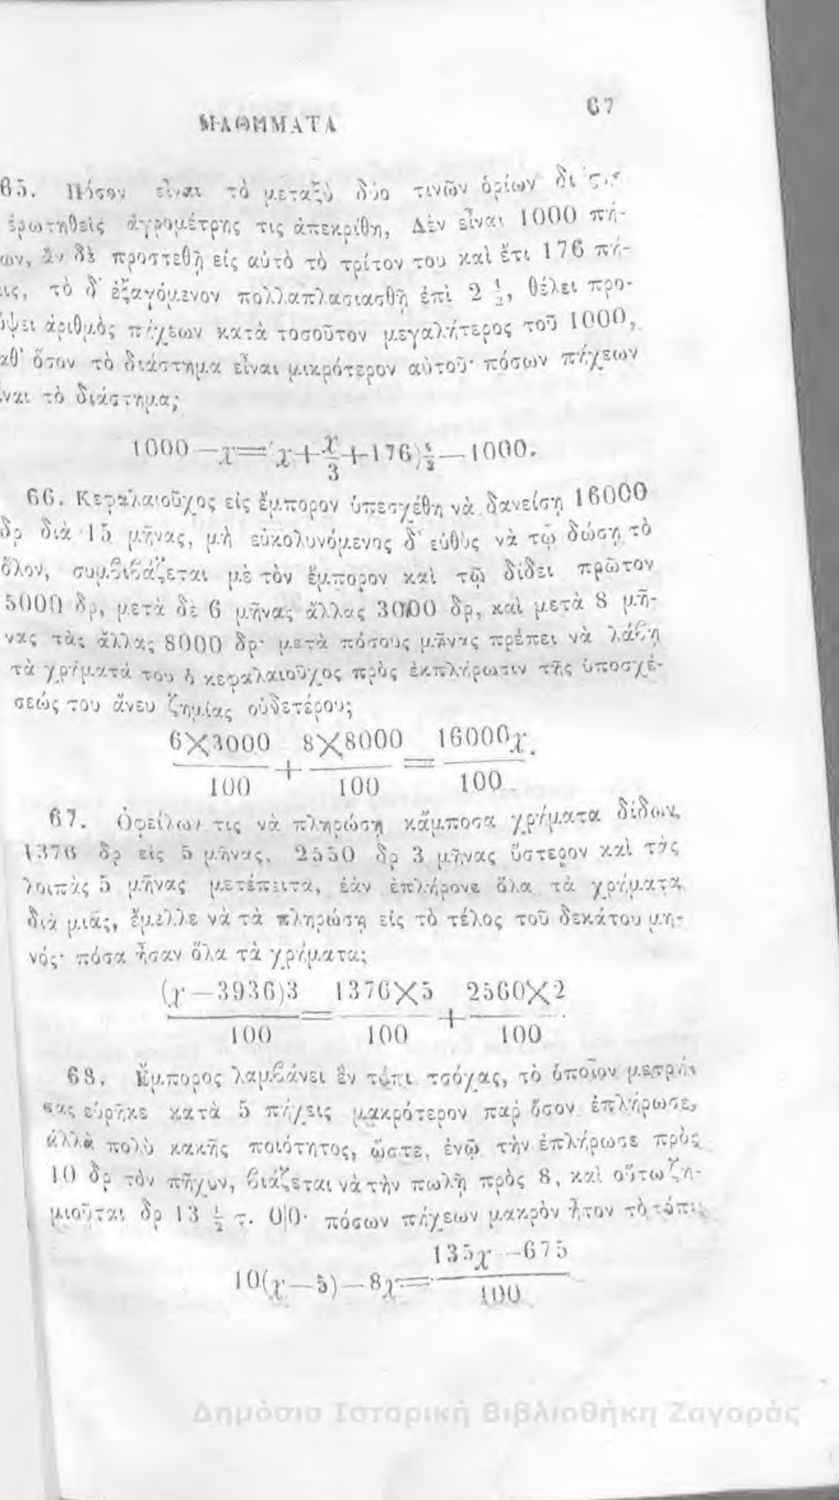 67
ΜΑΘΗΜΑΤΑ
65. Πόσον εἶναι τὸ μεταξὺ δύο τινῶν ὁρίων
ἐρωτηθεὶς ἀγρομέτρης τις ἀπεκρίθη, Δὲν εἶναι 1000 πή-
ων, ἂν δὲ προστεθῇ εἰς αὐτὸ τὸ τρίτον του καὶ ἔτι 176 πή-
ις, τὸ δ' ἐξαγόμενον πολλαπλασιασθῇ ἐπὶ 2 ½, θέλει προ-
ύψει ἀριθμὸς πήχεων κατὰ τοσοῦτον μεγαλήτερος τοῦ 1000,
αθ' ὅσον τὸ διάστημα εἶναι μικρότερον αὐτοῦ· πόσων πήχεων
ναι τὸ διάστημα;
1000—x=(x+x/3+176)5/2—1000.
66. Κεφαλαιοῦχος εἰς ἔμπορον ὑπεσχέθη νὰ δανείσῃ 16000
δρ διὰ 15 μῆνας, μὴ εὐκολυνόμενος δ' εὐθὺς νὰ τῷ δώσῃ τὸ
ὅλον, συμβιβάζεται μὲ τὸν ἔμπορον καὶ τῷ δίδει πρῶτον
5000 δρ, μετὰ δὲ 6 μῆνας ἄλλας 3000 δρ, καὶ μετὰ 8 μῆ-
νας τὰς ἄλλας 8000 δρ· μετὰ πόσους μῆνας πρέπει νὰ λάβῃ
τὰ χρήματά του ὁ κεφαλαιοῦχος πρὸς ἐκπλήρωσιν τῆς ὑποσχέ-
σεώς του ἄνευ ζημίας οὐδετέρου;
6×3000/100 + 8×8000/100 = 16000x/100.
67. Ὀφείλων τις νὰ πληρώσῃ κἄμποσα χρήματα δίδων
1376 δρ εἰς 5 μῆνας, 2550 δρ 3 μῆνας ὕστερον καὶ τὰς
λοιπὰς 5 μῆνας μετέπειτα, ἐὰν ἐπλήρονε ὅλα τὰ χρήματα
διὰ μιᾶς, ἔμελλε νὰ τὰ πληρώσῃ εἰς τὸ τέλος τοῦ δεκάτου μη-
νός· πόσα ἦσαν ὅλα τὰ χρήματα;
(x—3936)3/100 = 1376×5/100 + 2560×2/100
68. Ἔμπορος λαμβάνει ἓν τόπι τσόχας, τὸ ὁποῖον μετρή-
σας εὑρῆκε κατὰ 5 πήχεις μακρότερον παρ' ὅσον ἐπλήρωσε,
ἀλλὰ πολὺ κακῆς ποιότητος, ὥστε, ἐνῷ τὴν ἐπλήρωσε πρὸς
10 δρ τὸν πῆχυν, βιάζεται νὰ τὴν πωλῇ πρὸς 8, καὶ οὕτω ζη-
μιοῦται δρ 13 ½ τ. 0|0· πόσων πήχεων μακρὸν ἦτον τὸ τόπι;
10(x—5)—8x=135x—675/100
Δημόσια Ιστορική Βιβλιοθήκη Ζαγοράς